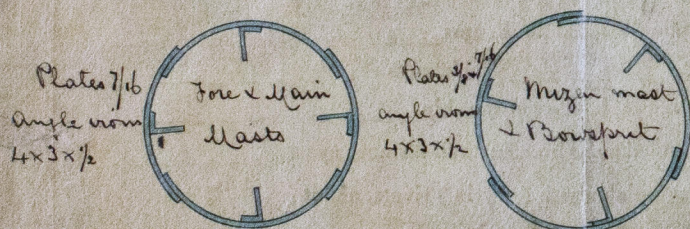 Plates 7/16
Angle irons
4 x 3 x 1/2
Fore & Main
Masts
Plates 3/8 & 7/16
angle irons
4 x 3 x 1/2
Mizen mast
& Bowsprit